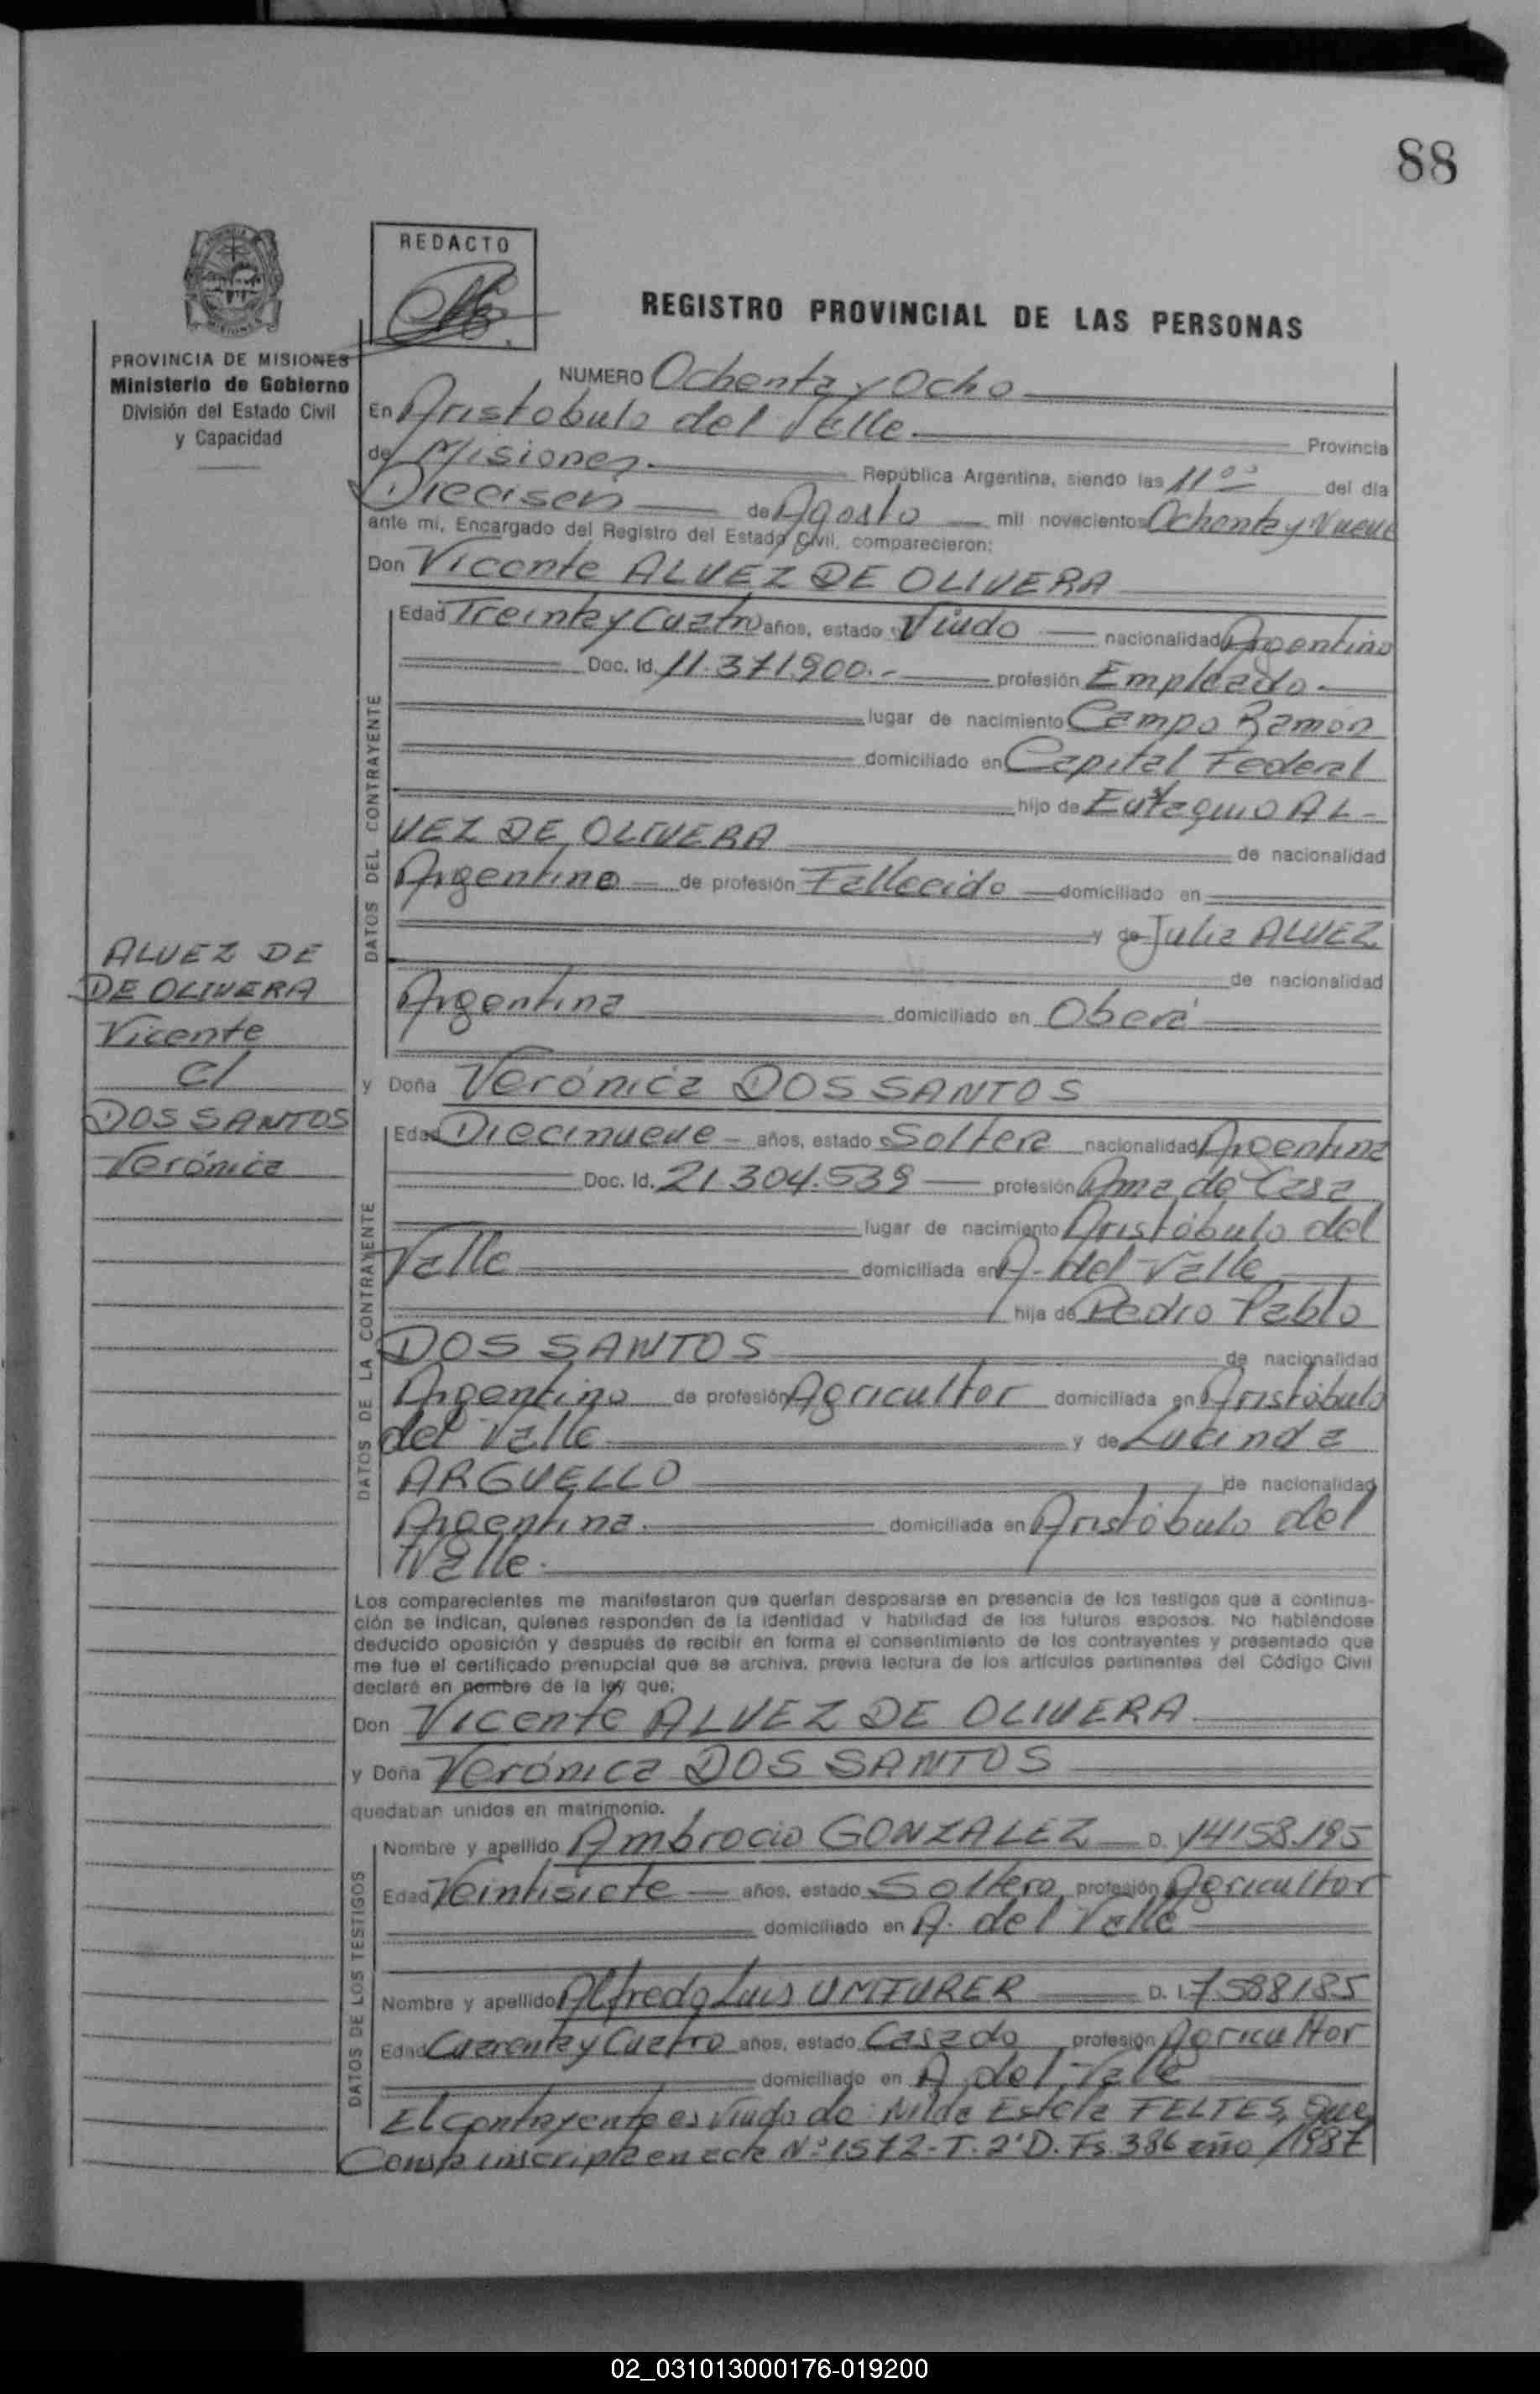 88
REDACTO
REGISTRO PROVINCIAL DE LAS PERSONAS
PROVINCIA DE MISIONES
Ministerio de Gobierno
División del Estado Civil
y Capacidad
NUMERO Ochenta y Ocho
En Aristobulo del Valle Provincia
de Misiones República Argentina, siendo las 11°° del día
Dieciseis de Agosto mil novecientos Ochenta y Nueve
ante mí, Encargado del Registro del Estado Civil, comparecieron:
Don Vicente ALVEZ DE OLIVERA
DATOS DEL CONTRAYENTE
Edad Treinta y Cuatro años, estado Viudo nacionalidad Argentino
Doc. Id. 11.371.900.- profesión Empleado
lugar de nacimiento Campo Ramon
domiciliado en Capital Federal
hijo de Eustaquio AL-
VEZ DE OLIVERA de nacionalidad
Argentino de profesión Fallecido domiciliado en
y de Julia ALVEZ
de nacionalidad
Argentina domiciliado en Oberá
ALVEZ DE
DE OLIVERA
Vicente
c/
DOS SANTOS
Verónica
y Doña Verónica DOS SANTOS
DATOS DE LA CONTRAYENTE
Edad Diecinueve años, estado Soltera nacionalidad Argentina
Doc. Id. 21.304.539 profesión Ama de Casa
lugar de nacimiento Aristóbulo del
Valle domiciliada en A. del Valle
hija de Pedro Pablo
DOS SANTOS de nacionalidad
Argentino de profesión Agricultor domiciliada en Aristóbulo
del Valle y de Lucinda
ARGUELLO de nacionalidad
Argentina. domiciliada en Aristóbulo del
Valle.
Los comparecientes me manifestaron que querían desposarse en presencia de los testigos que a continua-
ción se indican, quienes responden de la identidad y habilidad de los futuros esposos. No habiéndose
deducido oposición y después de recibir en forma el consentimiento de los contrayentes y presentado que
me fue el certificado prenupcial que se archiva, previa lectura de los artículos pertinentes del Código Civil
declaré en nombre de la ley que:
Don Vicente ALVEZ DE OLIVERA
y Doña Verónica DOS SANTOS
quedaban unidos en matrimonio.
DATOS DE LOS TESTIGOS
Nombre y apellido Ambrocio GONZALEZ D. 14158.195
Edad Veintisiete años, estado Soltero profesión Agricultor
domiciliado en A. del Valle
Nombre y apellido Alfredo Luis UNTURER D. I. 7588185
Edad Cuarenta y Cuatro años, estado Casado profesión Agricultor
domiciliado en A. del Valle
El contrayente es Viudo de: Nilda Estela FELTES, Que
Consta inscripta en acta N° 1572-T. 2° D. Fs. 386 año /1987
02_031013000176-019200